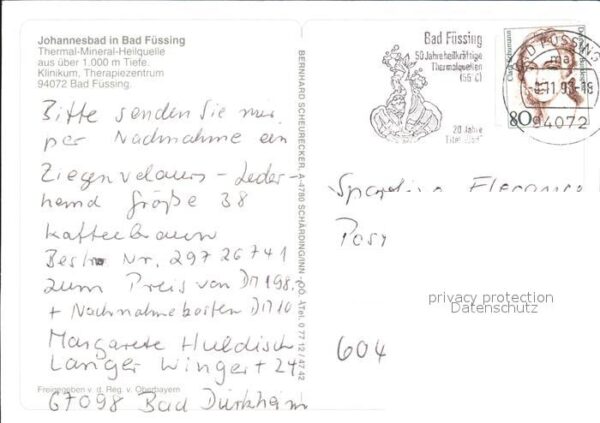 Johannesbad in Bad Füssing
Thermal-Mineral-Heilquelle
aus über 1.000 m Tiefe.
Klinikum, Therapiezentrum
94072 Bad Füssing.
Bitte senden Sie mir
per Nachnahme ein
Ziegenvelours-Leder-
hemd Größe 38
kaffeebraun
Best. Nr. 297 26741
zum Preis von DM 198.-
+ Nachnahmekosten DM 10
Margarete Huldisch
Langer Winger + 24
67098 Bad Dürkheim
Freigegeben v. d. Reg. v. Oberbayern
BERNHARD SCHEURECKER, A-4780 SCHÄRDING/INN Tel. 0 77 12 / 47 42
Bad Füssing
50 Jahre heilkräftige
Thermalquellen
(56°C)
20 Jahre
Titel "Bad"
Clara Schumann
80
BAD FÜSSING
ma
11.93-18
94072
Post
604
privacy protection
Datenschutz